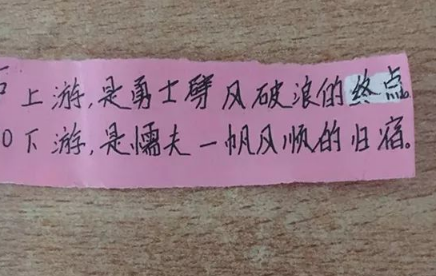 上游,是勇士劈风破浪的终点。
0下游,是懦夫一帆风顺的归宿。